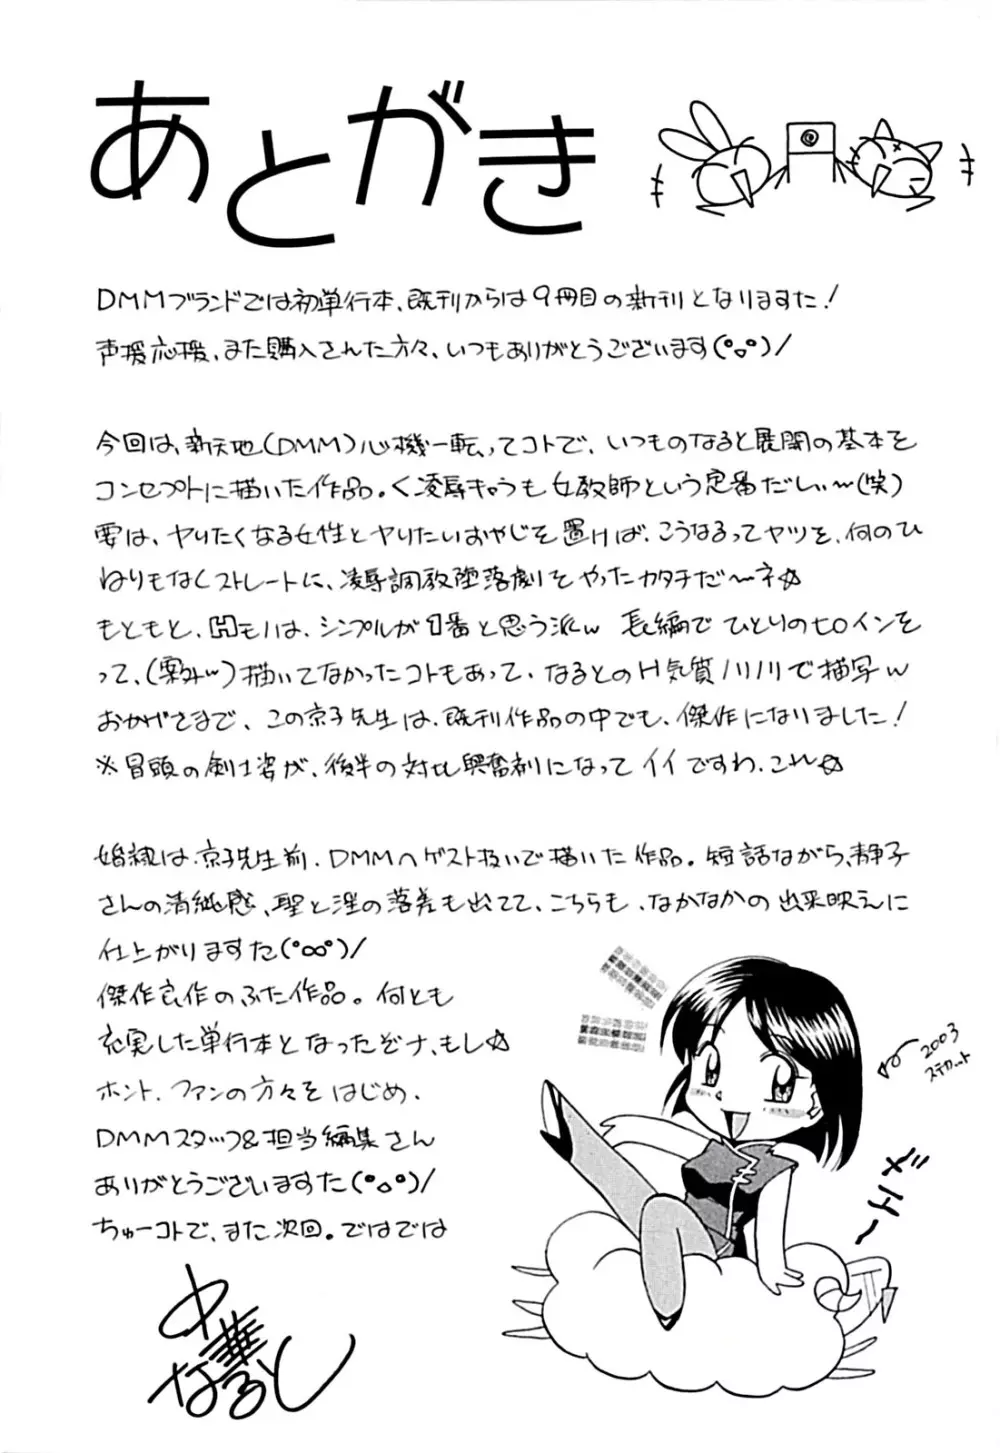 あとがき
DMMブランドでは初単行本、既刊からは9冊目の新刊となりますた!
声援応援、また購入された方々、いつもありがとうございます(°◡°)/
今回は、新天地(DMM)心機一転、ってコトで、いつものなると展開の基本を
コンセプトに描いた作品。く凌辱キョうも女教師という定番だしぃ〜(笑)
要は、ヤりたくなる女性とヤりたいおやじを置けば、こうなるってヤツを、何のひ
ねりもなくストレートに、凌辱調教堕落劇をやったカタチだ〜ネ☆
もともと、Hモノは、シンプルが1番と思う派w 長編でひとりのヒロインを
って、(案外w)描いてなかったコトもあって、なるとのH気質ノリノリで描写w
おかげさまで、この京子先生は、既刊作品の中でも、傑作になりました!
※冒頭の剣士姿が、後半の対比興奮剤になってイイですわ、これ☆
婚隷は、京子先生前、DMMへゲスト扱いで描いた作品。短話ながら、静子
さんの清純感、聖と淫の落差も出てて、こちらも、なかなかの出来映えに
仕上がりますた(°∞°)/
傑作良作のふた作品。何とも
充実した単行本となったぞナ、もし☆
ホント、ファンの方々をはじめ、
DMMスタッフ&担当編集さん
ありがとうございますた(°◡°)/
ちゅーコトで、また次回。ではでは
中華なると
2003
ステカット
メエ〜